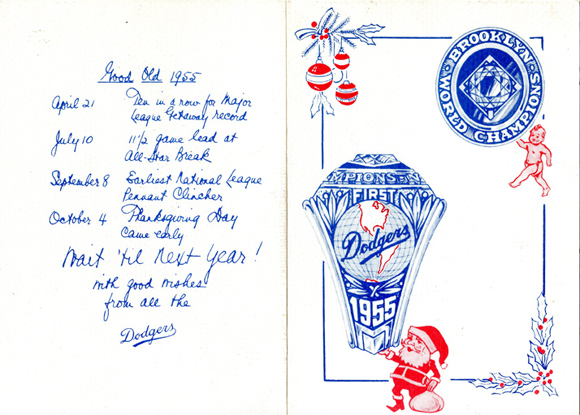 Good Old 1955
April 21 Ten in a row for Major
League Getaway record
July 10 11½ game lead at
All-Star Break
September 8 Earliest National League
Pennant Clincher
October 4 Thanksgiving Day
Came early
Wait 'til Next Year!
with good wishes
from all the
Dodgers
BROOKLYN
WORLD CHAMPIONS
MPIONS
FIRST
Dodgers
1955